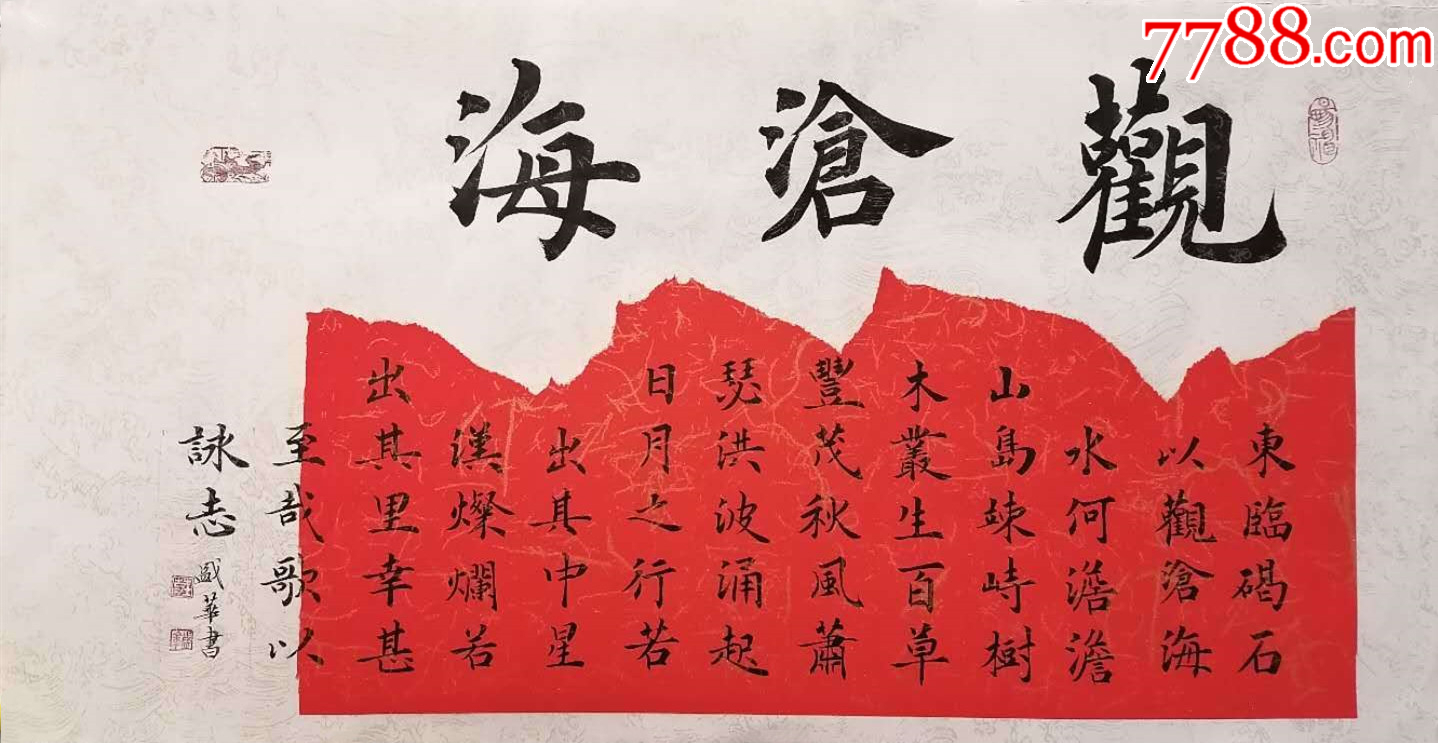 7788.com
觀滄海
東臨碣石
以觀滄海
水何澹澹
山島竦峙樹
木叢生百草
豐茂秋風蕭
瑟洪波涌起
日月之行若
出其中星
漢燦爛若
出其里幸甚
至哉歌以
詠志
盛華書